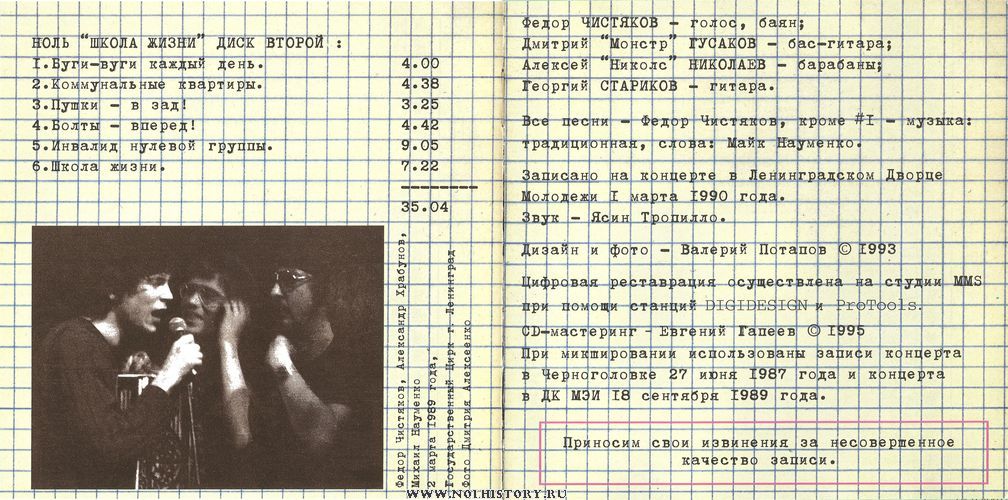 НОЛЬ "ШКОЛА ЖИЗНИ" ДИСК ВТОРОЙ :
I.Буги-вуги каждый день. 4.00
2.Коммунальные квартиры. 4.38
3.Пушки - в зад! 3.25
4.Болты - вперед! 4.42
5.Инвалид нулевой группы. 9.05
6.Школа жизни. 7.22
35.04
Федор Чистяков, Александр Храбунов,
Михаил Науменко
2 марта 1989 года,
Государственный Цирк г. Ленинград
Фото Дмитрия Алексеенко
Федор ЧИСТЯКОВ - голос, баян;
Дмитрий "Монстр" ГУСАКОВ - бас-гитара;
Алексей "Николс" НИКОЛАЕВ - барабаны;
Георгий СТАРИКОВ - гитара.
Все песни - Федор Чистяков, кроме #I - музыка:
традиционная, слова: Майк Науменко.
Записано на концерте в Ленинградском Дворце
Молодежи I марта I990 года.
Звук - Ясин Тропилло.
Дизайн и фото - Валерий Потапов © I993
Цифровая реставрация осуществлена на студии MMS
при помощи станций DIGIDESIGN и ProTools.
CD-мастеринг - Евгений Гапеев © I995
При микшировании использованы записи концерта
в Черноголовке 27 июня I987 года и концерта
в ДК МЭИ I8 сентября I989 года.
Приносим свои извинения за несовершенное
качество записи.
WWW.NOLHISTORY.RU